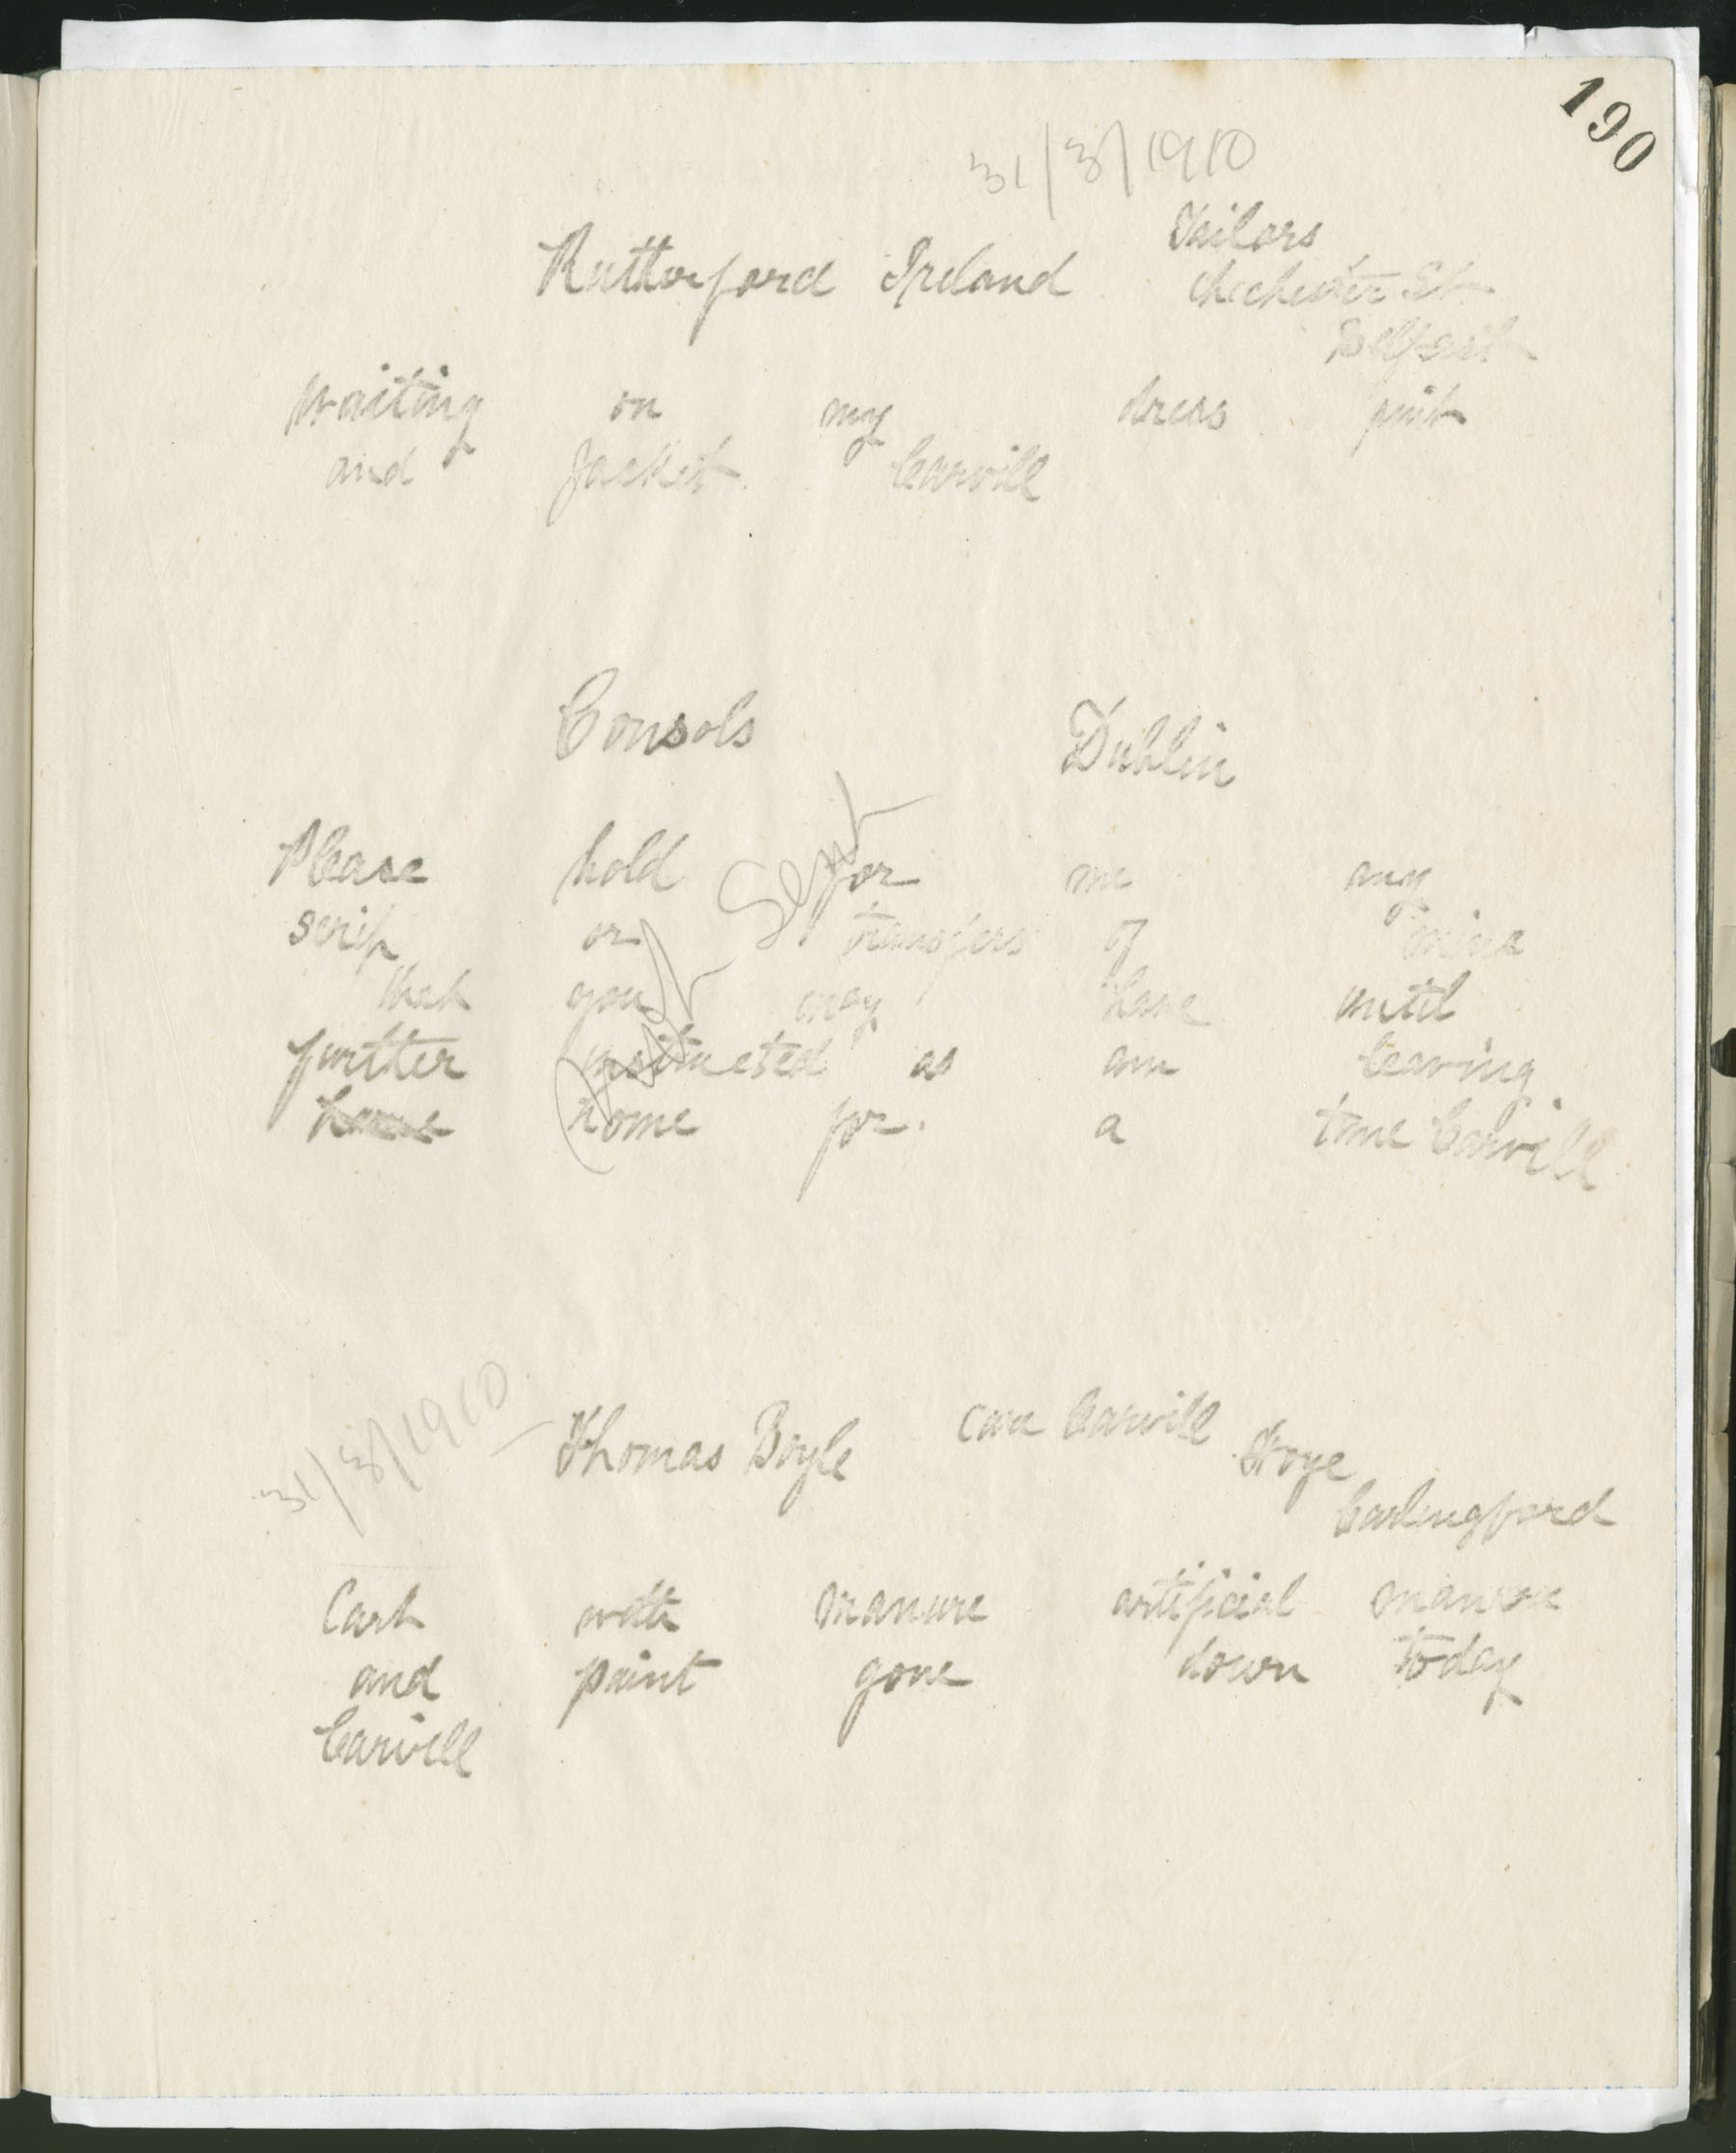 190
31/3/1910
Rutherford Ireland Tailors
Chichester St
Belfast
Waiting on my dress suit
and Jacket Carvill
Consols Dublin
Please hold for me any
scrip or transfers of mine
that you may have until
further instructed as am leaving
home home for a time Carvill
Not Sent
31/3/1910
Thomas Boyle care Carvill
Carlingford
Cart with manure artificial manure
and paint gone down today
Carvill